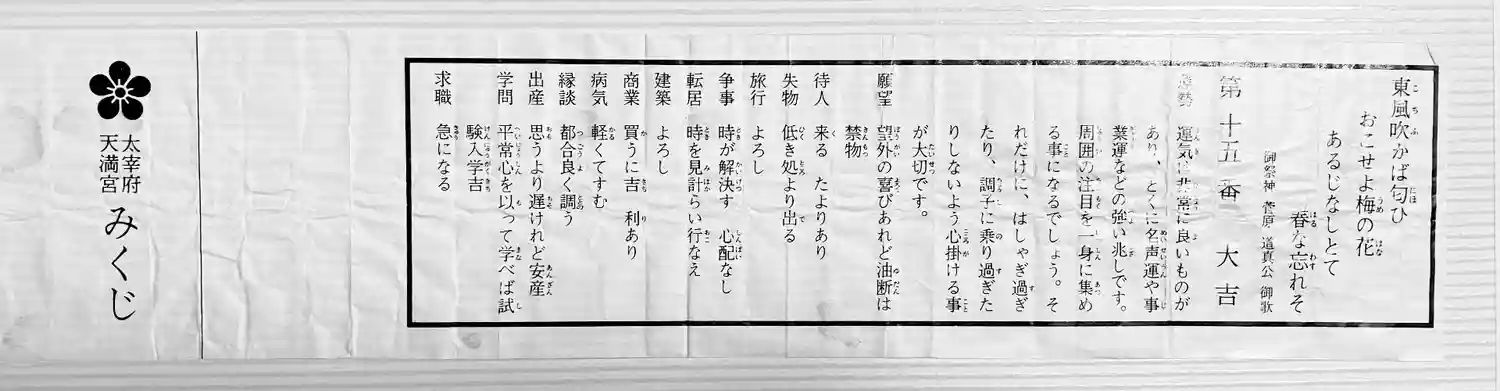 東風吹かば匂ひ
おこせよ梅の花
あるじなしとて
春な忘れそ
御祭神 菅原道真公 御歌
第十五番 大吉
運勢 運気は非常に良いものが
あり、とくに名声運や事
業運などの強い兆しです。
周囲の注目を一身に集め
る事になるでしょう。そ
れだけに、はしゃぎ過ぎ
たり、調子に乗り過ぎた
りしないよう心掛ける事
が大切です。
願望 望外の喜びあれど油断は
禁物
待人 来る たよりあり
失物 低き処より出る
旅行 よろし
争事 時が解決す 心配なし
転居 時を見計らい行なえ
建築 よろし
商業 買うに吉 利あり
病気 軽くてすむ
縁談 都合良く調う
出産 思うより遅けれど安産
学問 平常心を以って学べば試
験入学吉
求職 急になる
太宰府
天満宮
みくじ